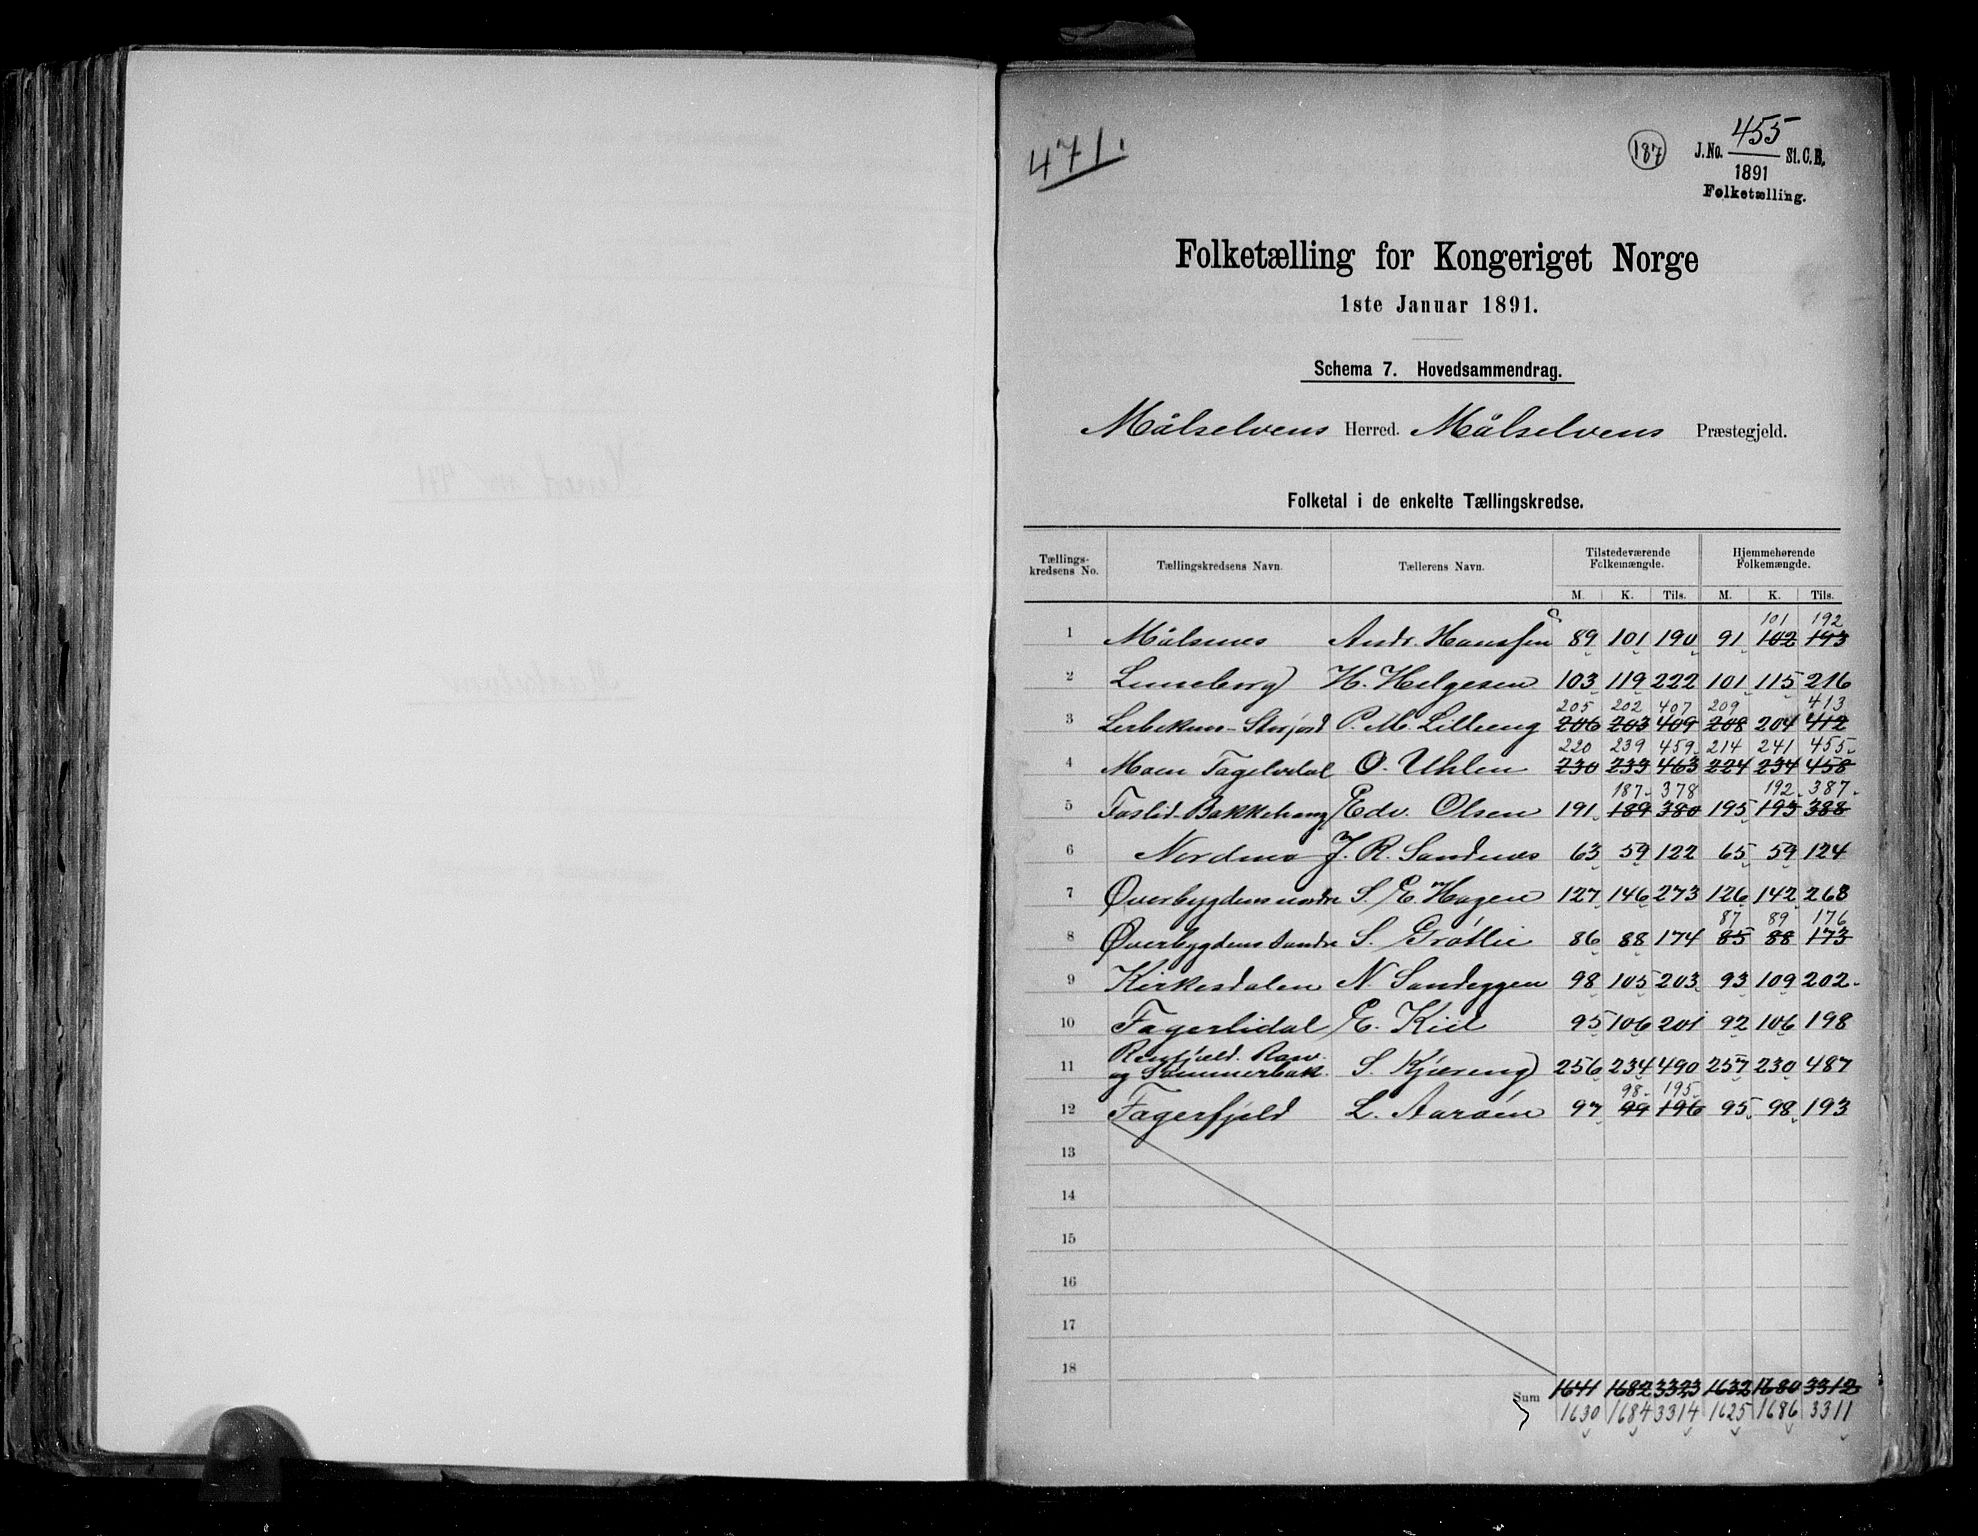 471.
187
J. No. 455 St. C. B.
1891
Folketælling.
Folketælling for Kongeriget Norge
1ste Januar 1891.
Schema 7. Hovedsammendrag.
Målselvens Herred. Målselvens Præstegjeld.
Folketal i de enkelte Tællingskredse.
Tællings-kredsens No. Tællingskredsens Navn. Tællerens Navn. Tilstedeværende Folkemængde. Hjemmehørende Folkemængde.
M. K. Tils. M. K. Tils.
101 192
1 Målsnes Andr. Hanssen 89 101 190 91 102 193
2 Luneborg H. Helgesen 103 119 222 101 115 216
205 202 407 209 413
3 P. M. Lilleeng 206 203 409 208 204 412
220 239 459 214 241 455
4 Moen Fagelvdal O. Uhlen 230 233 463 224 234 458
187 378 192 387
5 Foslid-Bakkehaug Edv. Olsen 191 189 380 195 193 388
6 Nordmo J. R. Sandnes 63 59 122 65 59 124
7 Øverbygdens nordre S. E. Hagen 127 146 273 126 142 268
87 89 176
8 Øverbygdens søndre S. Grøtlie 86 88 174 85 88 173
9 Kirkesdalen N. Sandeggen 98 105 203 93 109 202
10 Fagerlidal E. Kiil 95 106 201 92 106 198
11 og S. Kjæreng 256 234 490 257 230 487
98 195
12 Fagerfjeld L. Aarøen 97 99 196 95 98 193
13
14
15
16
17
18
Sum 1641 1682 3323 1632 1680 3312
1630 1684 3314 1625 1686 3311